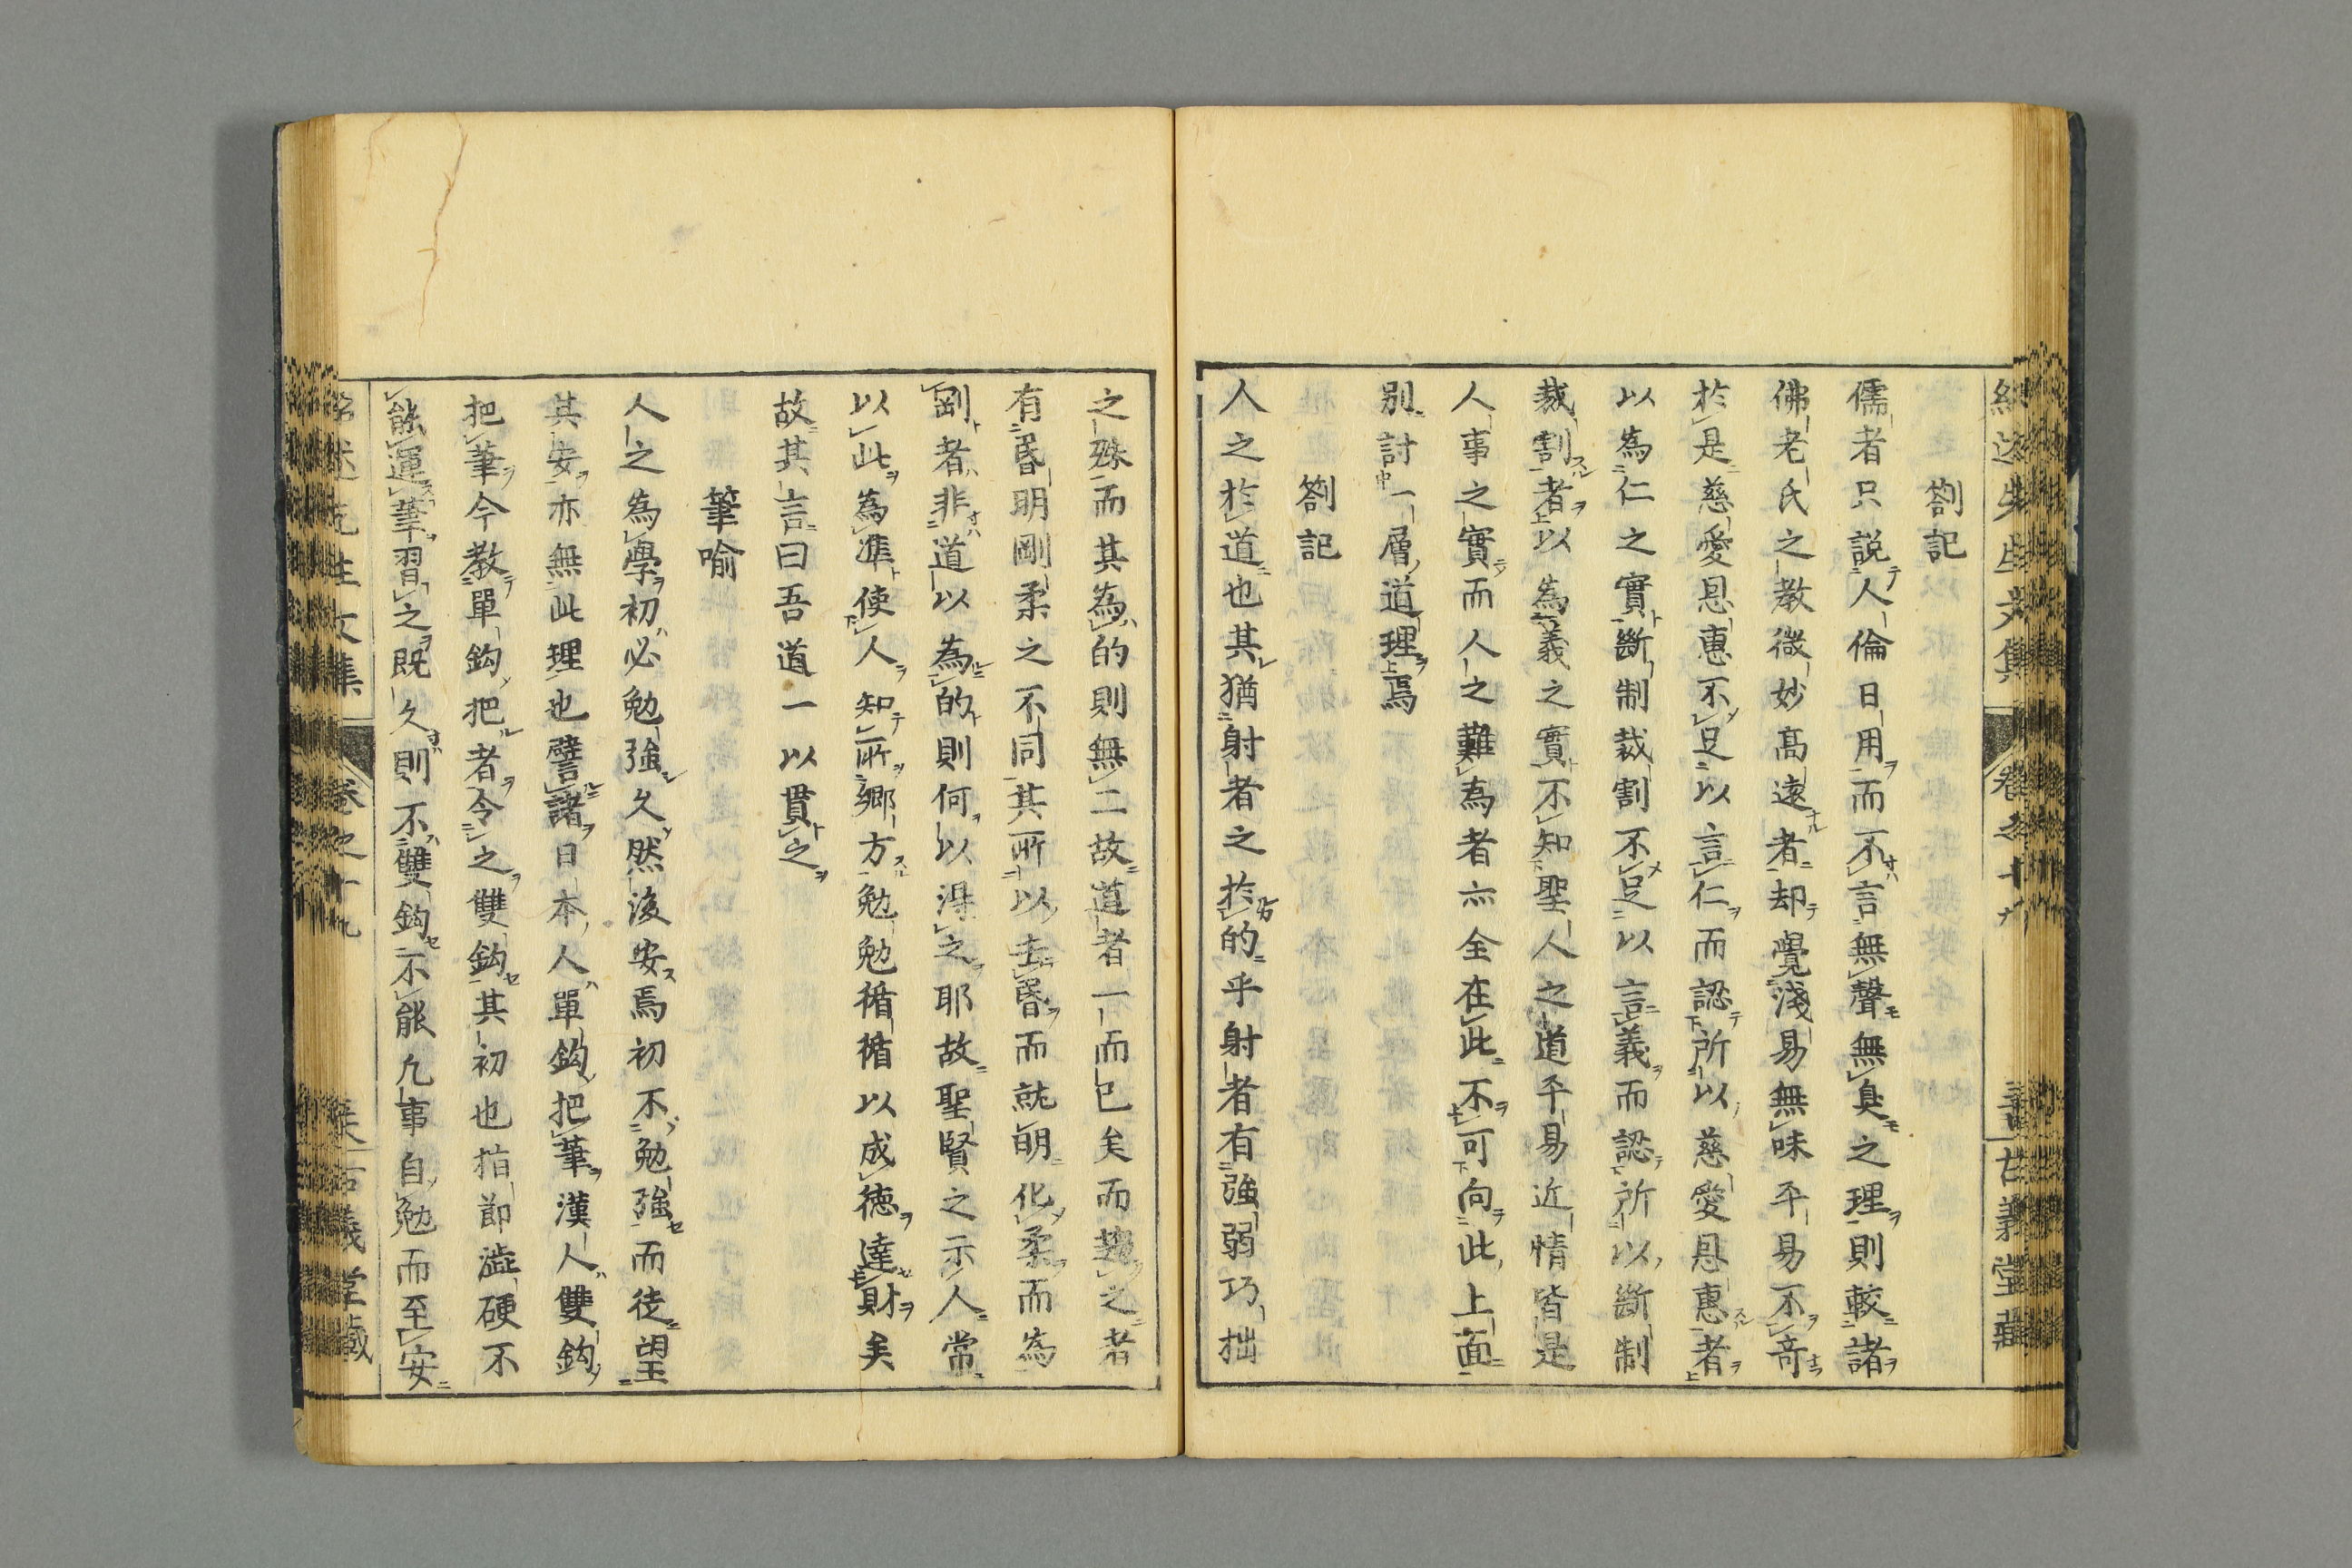 紹述先生文集 卷之十九 古義堂藏
劄記
儒者只說人倫日用而不言無聲無臭之理則較諸
佛老氏之教微妙高遠者却覺淺易無味平易不奇
於是慈愛恩惠不足以言仁而認所以慈愛恩惠者
以為仁之實斷制裁割不足以言義而認所以斷制
裁割者以為義之實不知聖人之道平易近情皆是
人事之實而人之難為者亦全在此不可向此上面
別討一層道理焉
劄記
人之於道也其猶射者之於的乎射者有強弱巧拙
之殊而其為的則無二故道者一而已矣而趨之者
有昏明剛柔之不同其所以去昏而就明化柔而為
剛者非道以為的則何以得之耶故聖賢之示人常
以此為準使人知所鄉方勉勉循循以成德達財矣
故其言曰吾道一以貫之
筆喻
人之為學初必勉強久然後安焉初不勉強而徒望
其安亦無此理也譬諸日本人單鈎把筆漢人雙鈎
把筆今教單鈎把者令之雙鈎其初也指節澁硬不
能運筆習之既久則不雙鈎不能凡事自勉而至安
紹述先生文集 卷之十九 古義堂藏